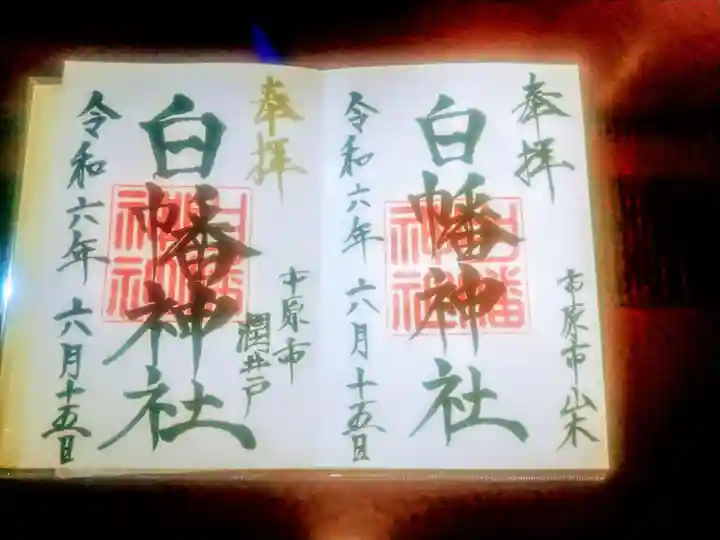 奉拝
市原市山木
白幡神社
白幡神社
令和六年六月十五日
奉拝
市原市
潤井戸
白幡神社
令和六年六月十五日